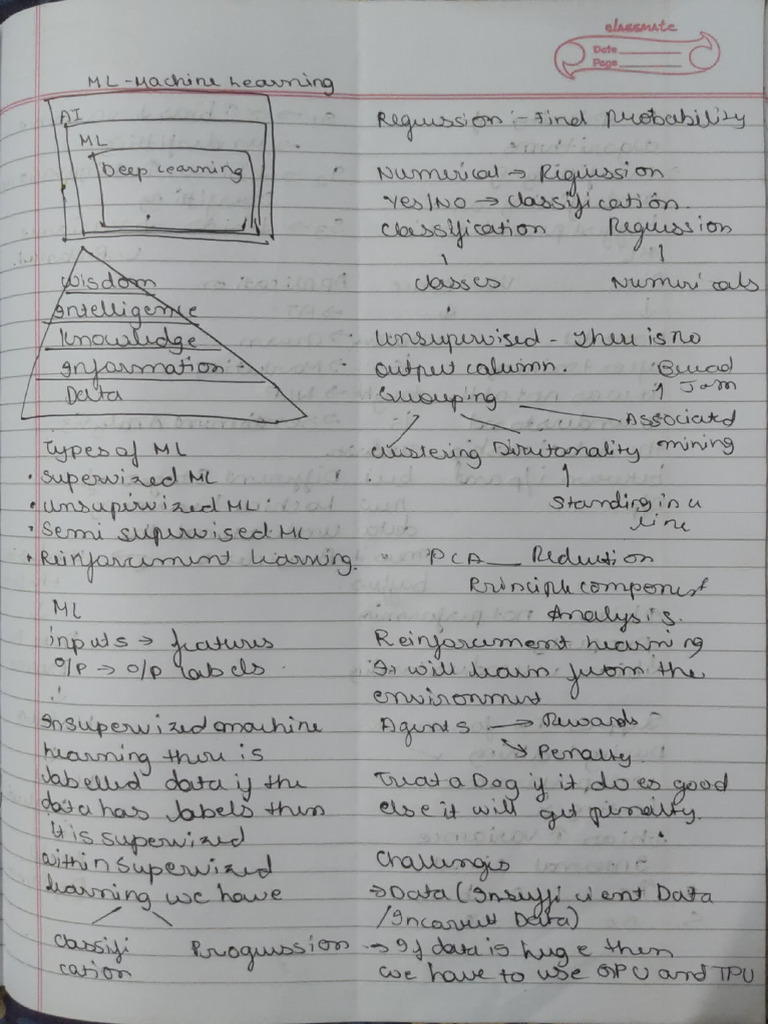 classmate
Date
Page
ML - Machine Learning
AI
ML
Deep Learning
Wisdom
Intelligence
Knowledge
Information
Data
Types of ML
• Supervized ML
• Unsupervized ML
• Semi supervised ML
• Reinforcement learning.
ML
inputs → features
O/P → O/P labels
In supervized machine
learning there is
labelled data if the
data has labels then
it is supervized
within supervized
learning we have
Classifi
cation
Progression
Regression :- Find Probability
Numerical → Rigression
Yes/No → classification.
Classification Regression
classes Numericals
Unsupervised - There is no
output column.
Bread
Jam
Grouping
Associated
mining
clustering
Standing in a
line
PCA Reduction
Principle component
Analysis.
Reinforcement learning
It will learn from the
environment
Agents → Rewards
→ Penalty.
Treat a Dog if it does good
else it will get penalty.
Challenges
→ Data (Insufficient Data
/Incorrect Data)
→ If data is huge then
we have to use GPU and TPU